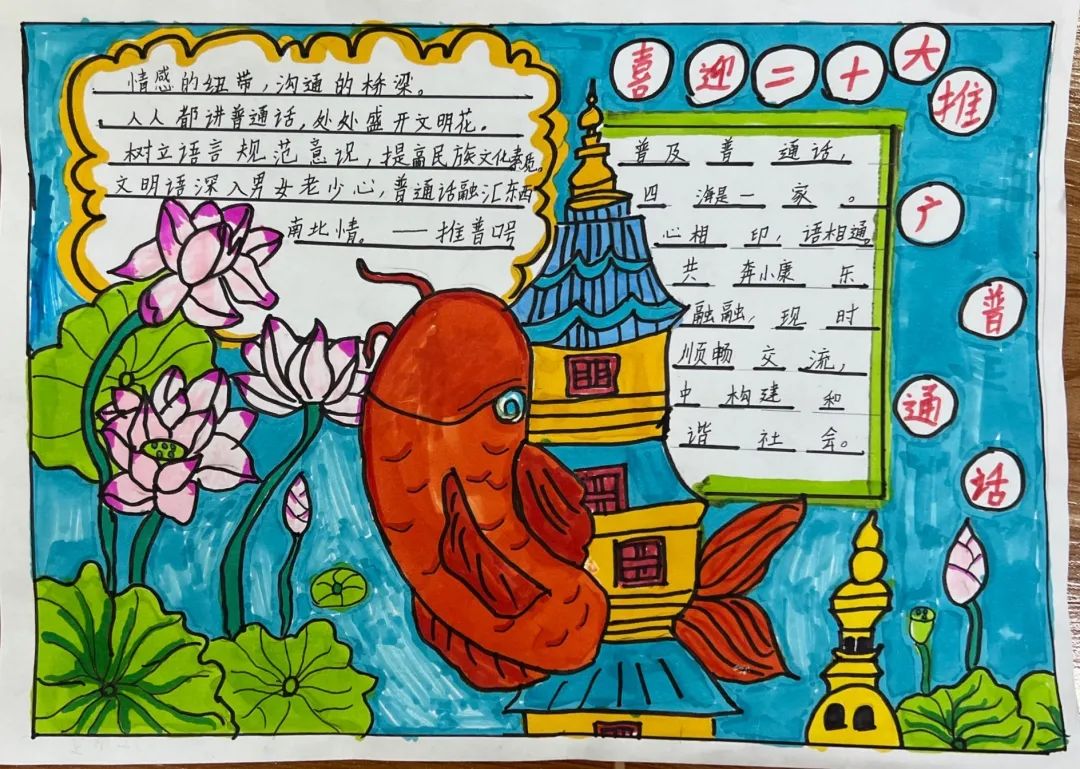 喜迎二十大推广普通话
情感的纽带，沟通的桥梁。
人人都讲普通话，处处盛开文明花。
树立语言规范意识，提高民族文化素质。
文明语深入男女老少心，普通话融汇东西
南北情。——推普号
普及普通话，
四海是一家。
心相印，语相通。
共奔小康乐
融融，现时
顺畅交流，
中构建和
谐社会。